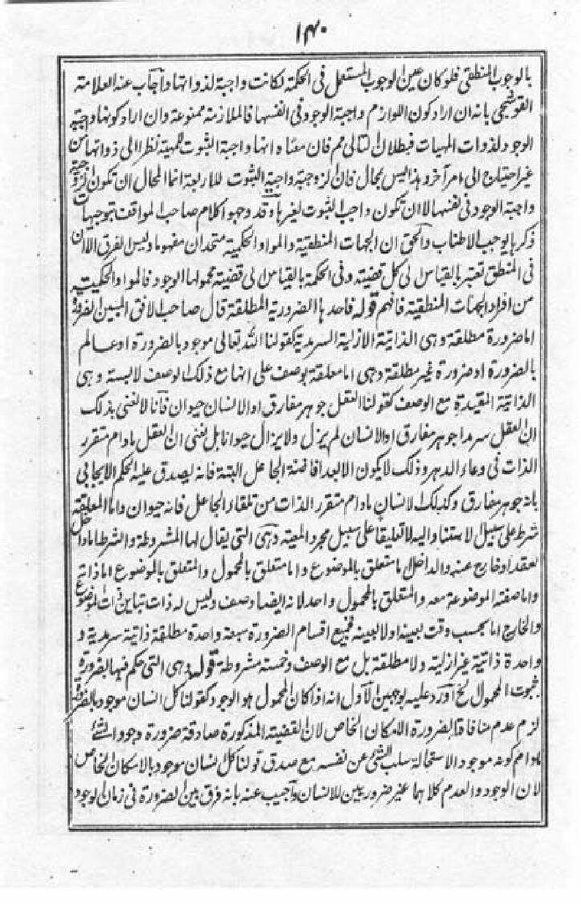 ١٤٠
بالوجوب المنطقى فلو كان عين الوجوب المستعمل فى الحكمة لكانت واجبة لذواتها وأجاب عنه العلامة
القوشجى بانه ان اراد كون اللوازم واجبة الوجود فى انفسها فالملازمة ممنوعة وان اراد كونها واجبة
الوجود لذوات المهيات فبطلان التالى مم فان معناه انها واجبة الثبوت للمهية نظرا الى ذواتها من
غير احتياج الى امر آخر وهذا ليس بمحال فان لزوجية واجبة الثبوت للاربعة انما المحال ان تكون الزوجية
واجبة الوجود فى نفسها لا ان تكون واجب الثبوت لغيرها وقد وجهوا كلام صاحب المواقف بتوجيهات
ذكرها يوجب الاطناب والحق ان الجهات المنطقية والمواد الحكمية متحدان مفهوما وليس الفرق الا ان
فى المنطق تعتبر بالقياس الى كل قضية وفى الحكمة بالقياس الى قضية محمولها الوجود فالمواد الحكمية
من افراد الجهات المنطقية فافهم قوله فاحدها الضرورية المطلقة قال صاحب الافق المبين الضرورة
اما ضرورة مطلقة وهى الذاتية الازلية السرمدية كقولنا الله تعالى موجود بالضرورة او عالم
بالضرورة او ضرورة غير مطلقة وهى اما معلقة بوصف على انها مع ذلك الوصف لا لبسة وهى
الذاتية المقيدة مع الوصف كقولنا العقل جوهر مفارق او الانسان حيوان فانا لا نعنى بذلك
ان العقل سرمدا جوهر مفارق او الانسان لم يزل ولا يزال حيوانا بل نعنى ان العقل مادام متقرر
الذات فى وعاء الدهر وذلك لا يكون الا بعد افاضة الجاعل البتة فانه يصدق عليه الحكم الايجابى
بانه جوهر مفارق وكذلك الانسان مادام متقرر الذات من تلقاء الجاعل فانه حيوان واما المعلقة
شرط على سبيل الاستناد اليه لا تعليقا على سبيل مجرد المعية وهى التى يقال لها المشروطة والشرط اما داخل
لعقد او خارج عنه والداخل اما متعلق بالموضوع واما متعلق بالمحمول والمتعلق بالموضوع اما ذاته
واما صفته الموضوعة معه والمتعلق بالمحمول واحد لانه ايضا وصف وليس له ذات تباين ذات الموضوع
والخارج اما بحسب وقت بعينه او لا بعينه فجميع اقسام الضرورة سبعة واحدة مطلقة ذاتية سرمدية و
واحدة ذاتية غير ازلية ولا مطلقة بل مع الوصف وخمسة مشروطة قوله وهى التى حكم فيها بالضرورية
بثبوت المحمول الخ اورد عليه بوجهين الاول انه اذا كان المحمول هو الوجود كقولنا كل انسان موجود بالضرورة
لزم عدم منافاة الضرورة الامكان الخاص لان القضية المذكورة صادقة ضرورة وجود الشئ
مادام كونه موجود الاستحالة سلب الشئ عن نفسه مع صدق قولنا كل انسان موجود بالامكان الخاص
لان الوجود والعدم كلاهما غير ضروريين للانسان واجيب عنه بانه فرق بين الضرورة فى زمان الوجود